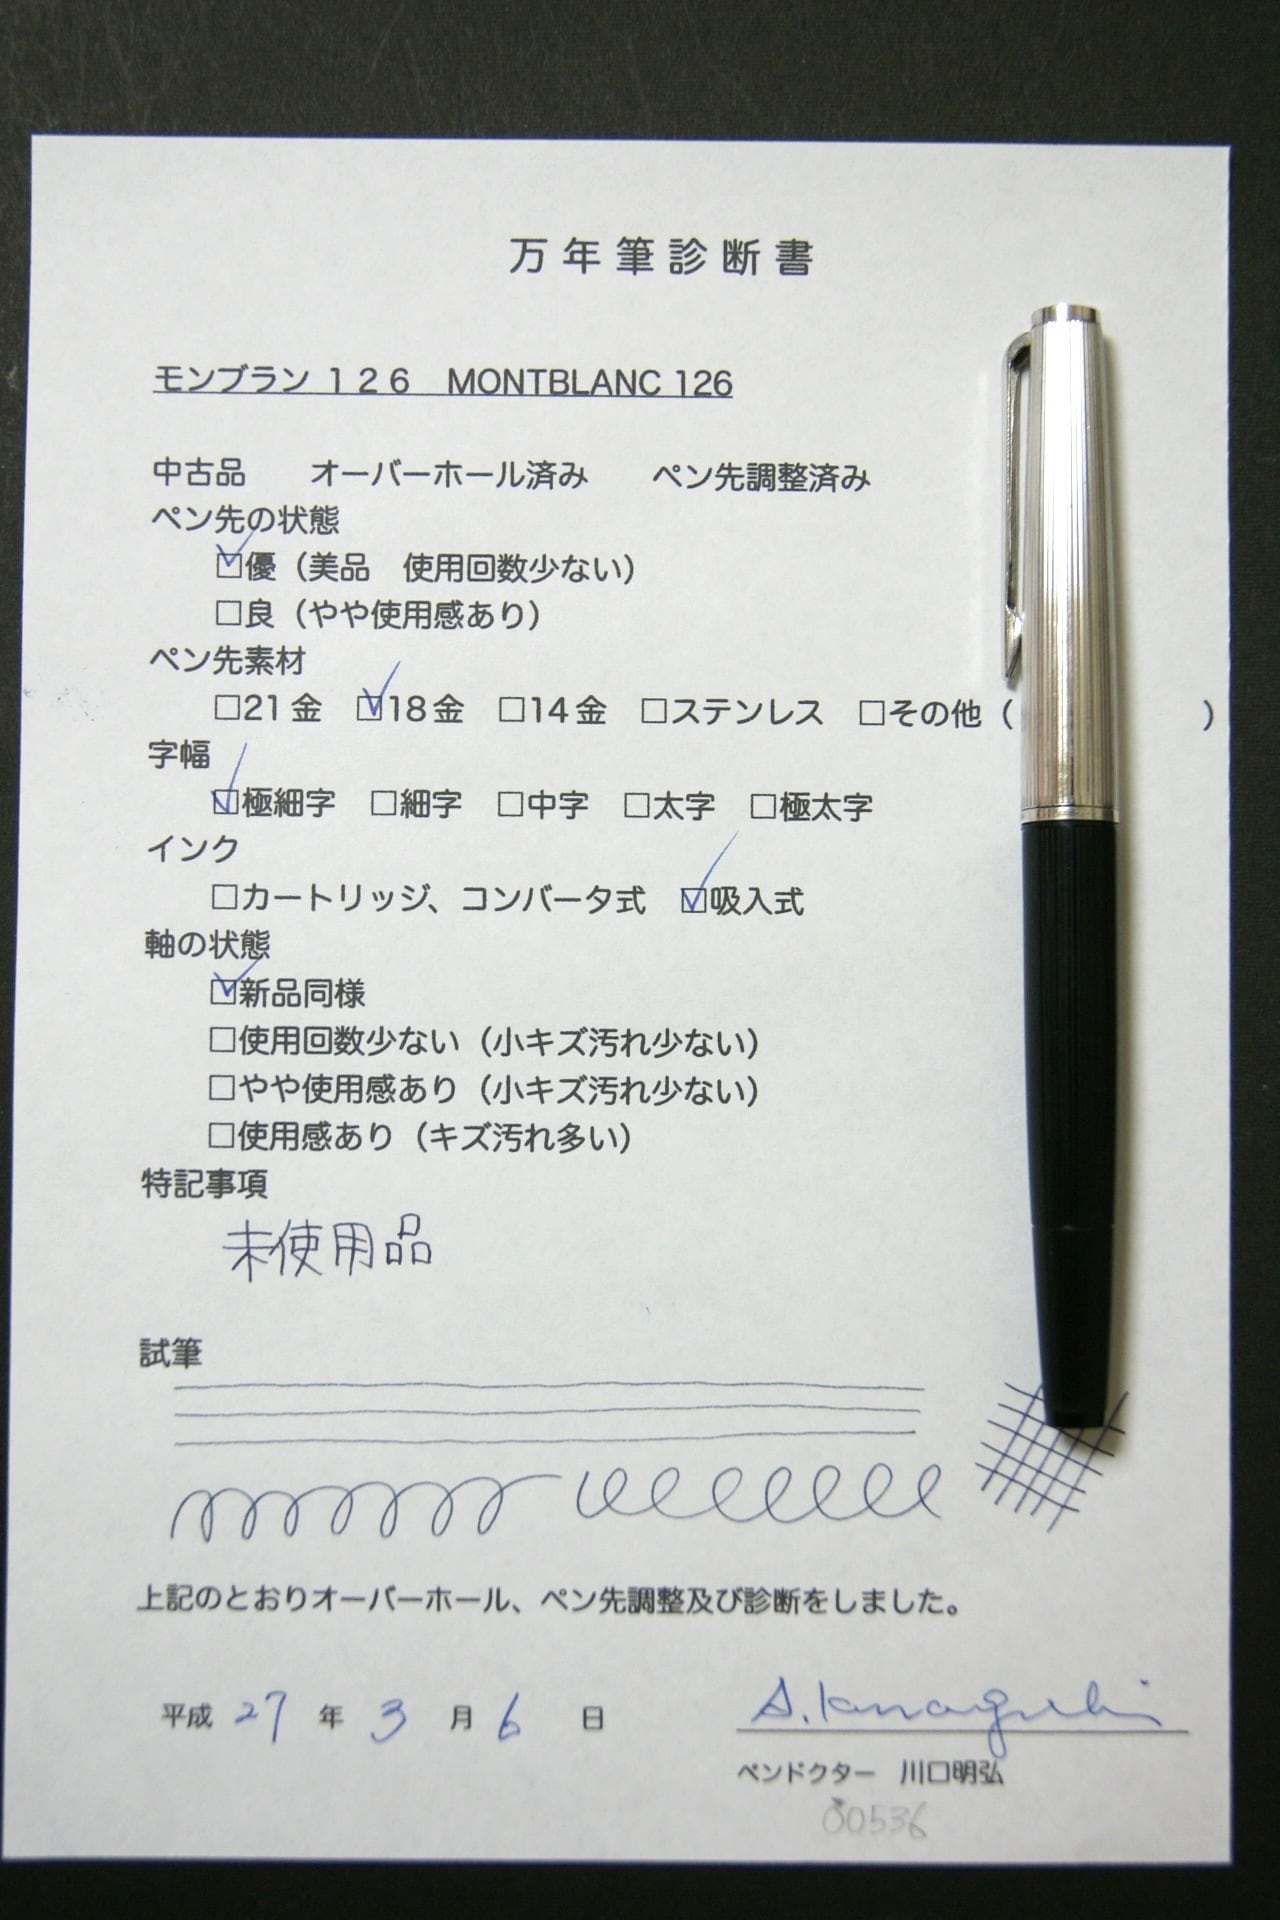 万年筆診断書
モンブラン１２６　MONTBLANC 126
中古品　　オーバーホール済み　　ペン先調整済み
ペン先の状態
☑優（美品　使用回数少ない）
□良（やや使用感あり）
ペン先素材
□21金　☑18金　□14金　□ステンレス　□その他（　　　　　　）
字幅
☑極細字　□細字　□中字　□太字　□極太字
インク
□カートリッジ、コンバータ式　☑吸入式
軸の状態
☑新品同様
□使用回数少ない（小キズ汚れ少ない）
□やや使用感あり（小キズ汚れ少ない）
□使用感あり（キズ汚れ多い）
特記事項
未使用品
試筆
上記のとおりオーバーホール、ペン先調整及び診断をしました。
平成 27 年 3 月 6 日
A. Kawaguchi
ペンドクター　川口明弘
00536